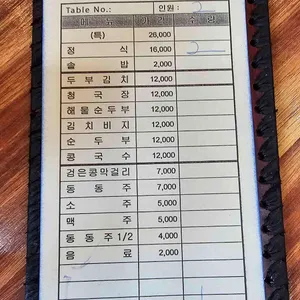 Table No.: 인원: 2
메 뉴 가 격 수 량
(특) 26,000
정 식 16,000 2
솥 밥 2,000
두 부 김 치 12,000
청 국 장 12,000
해 물 순 두 부 12,000
김 치 비 지 12,000
순 두 부 12,000
콩 국 수 12,000
검은콩막걸리 7,000
동 동 주 7,000
소 주 5,000
맥 주 5,000
동 동 주 1/2 4,000
음 료 2,000